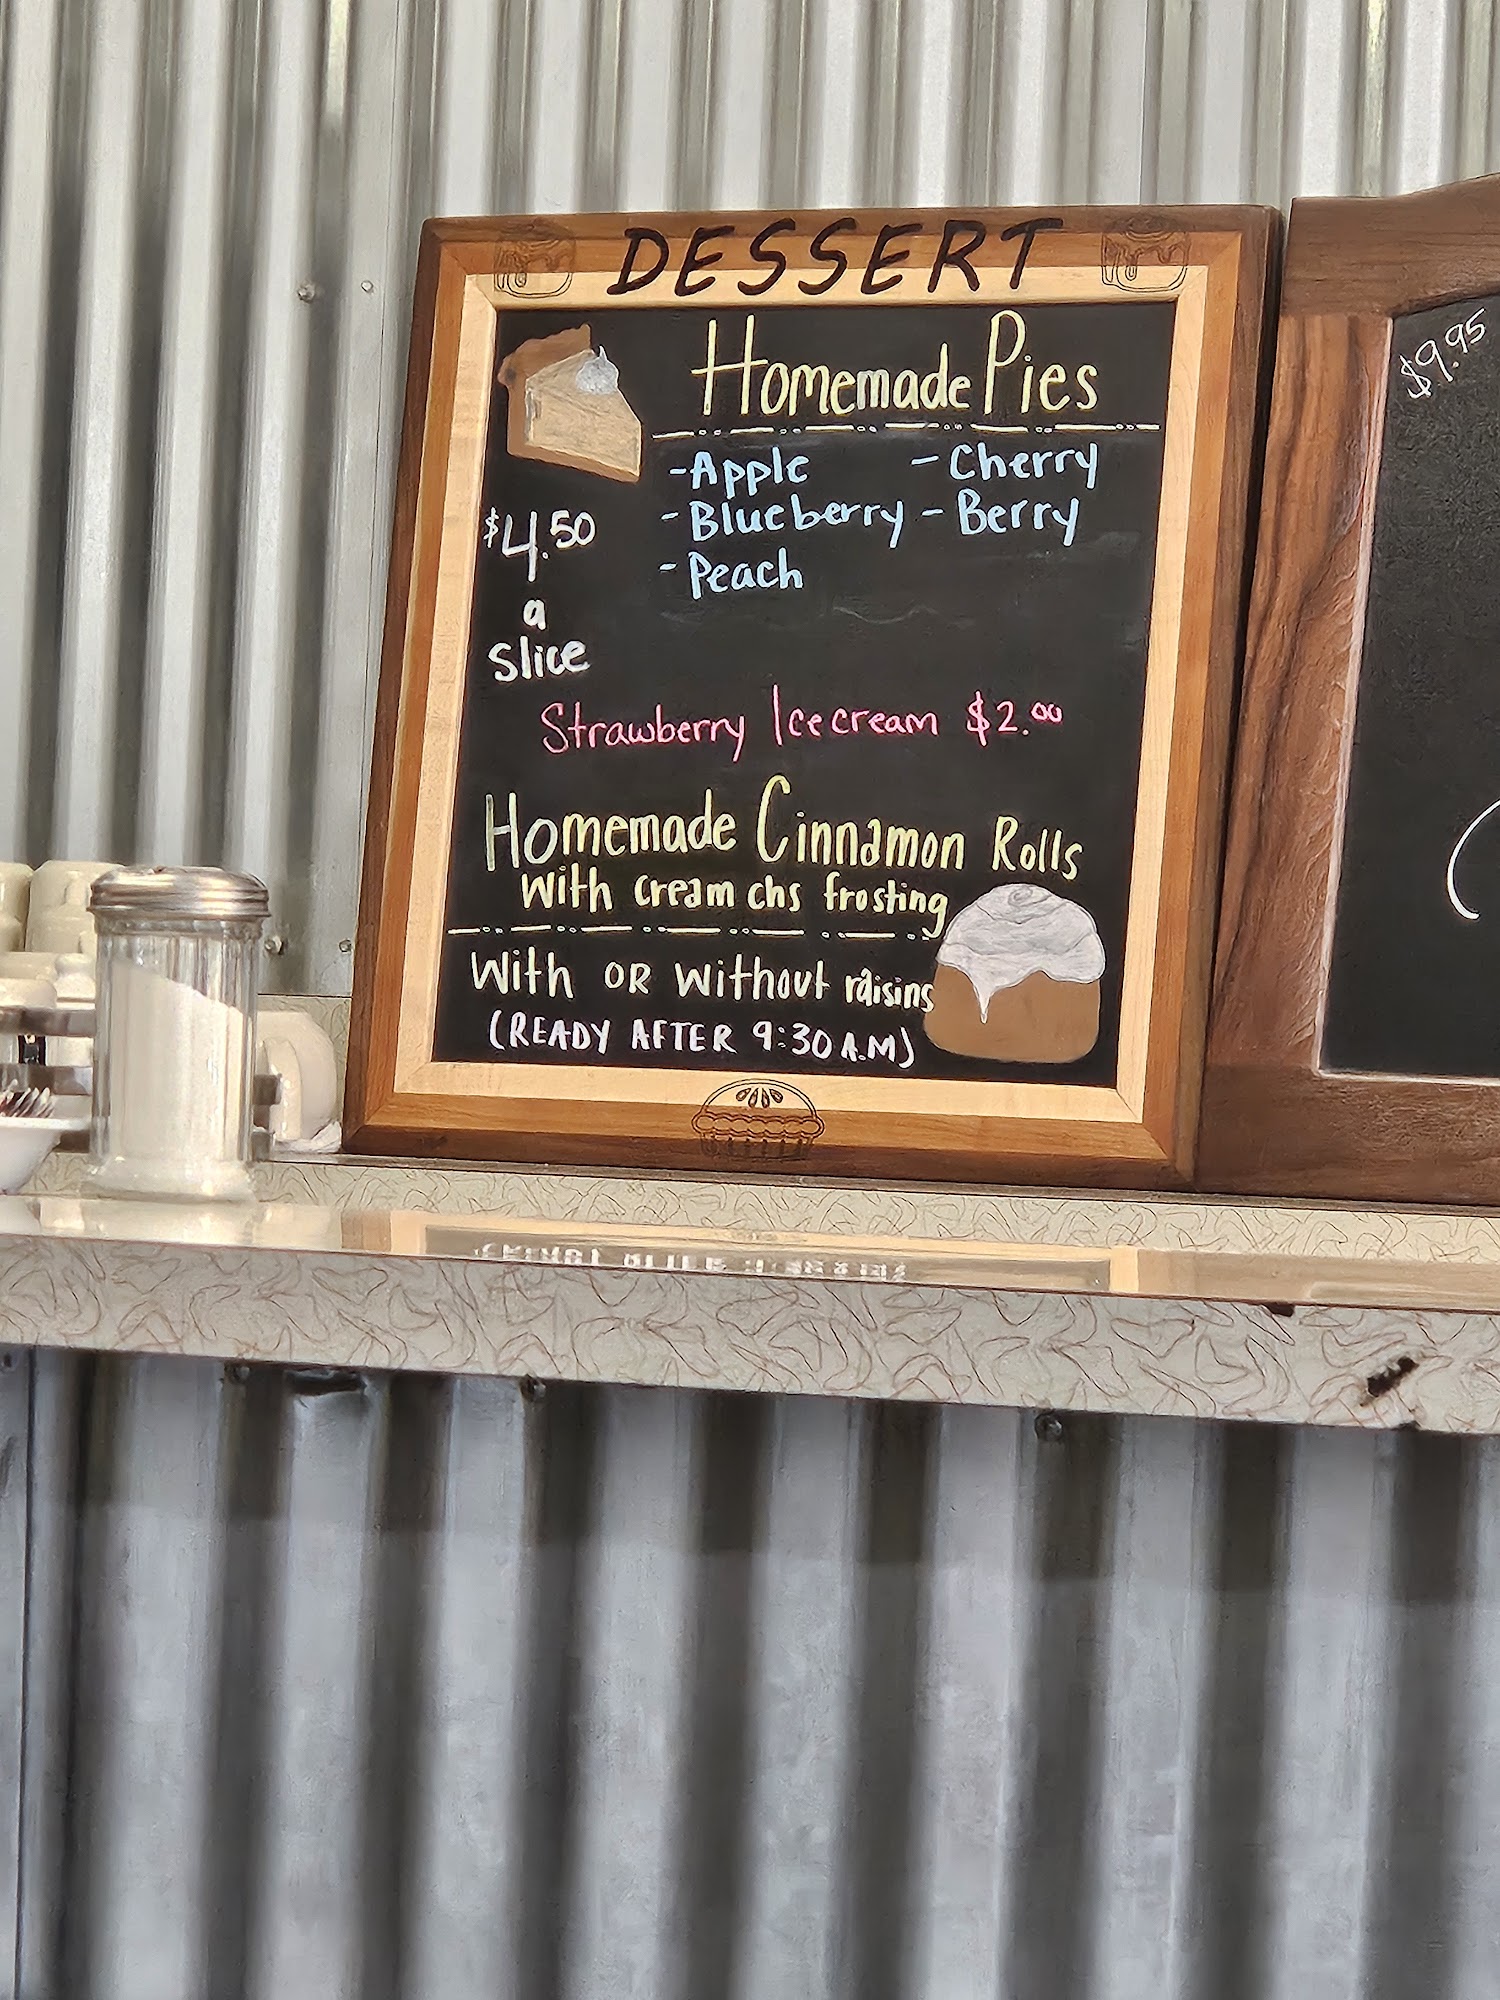 DESSERT
Homemade Pies
-Apple
- Cherry
-Blueberry
- Berry
- Peach
$4.50
a
slice
Strawberry Icecream $2.00
Homemade Cinnamon Rolls
with cream chs frosting
With OR Without raisins
(READY AFTER 9:30 A.M)
$9.95